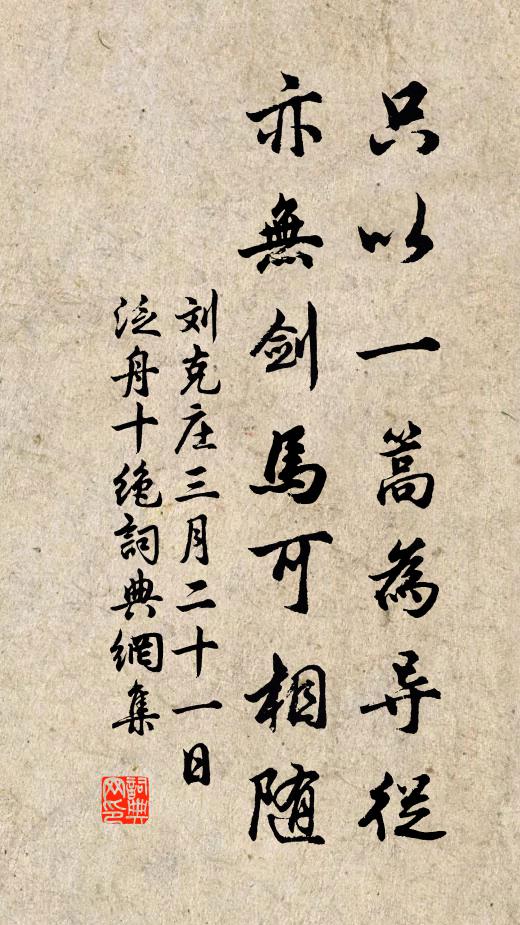 只以一篙為导從
亦無剑馬可相随
刘克庄三月二十一日
泛舟十绝詞典網集
詞典
网印